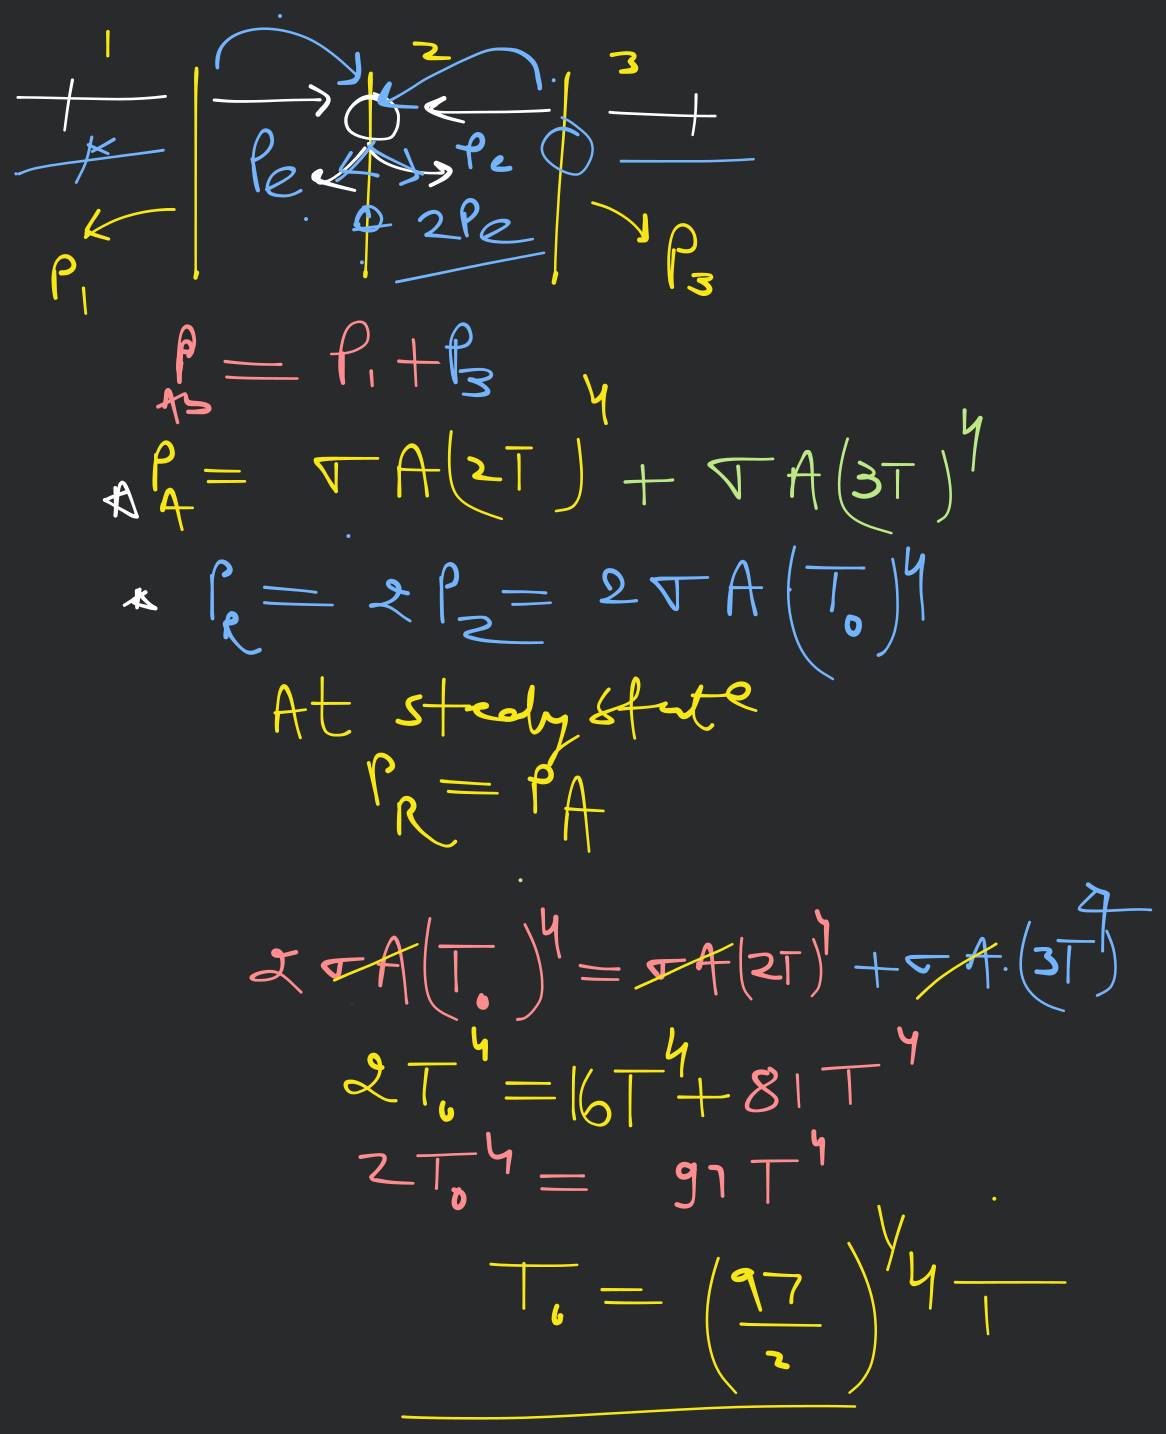 1 2 3
Pe Pe
2Pe
P₁ P₃
P_Ab = P₁ + P₃
P_A = σA(2T)⁴ + σA(3T)⁴
P_R = 2P₂ = 2σA(T₀)⁴
At steady state
P_R = P_A
2σA(T₀)⁴ = σA(2T)⁴ + σA.(3T)⁴
2T₀⁴ = 16T⁴ + 81T⁴
2T₀⁴ = 97T⁴
T₀ = (97/2)^1/4 T